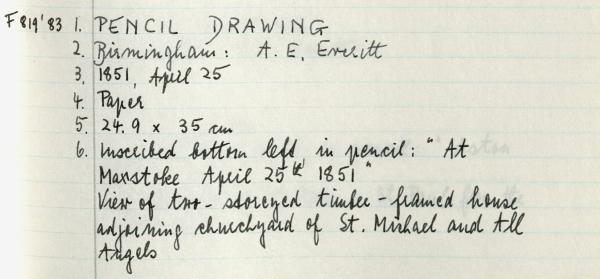 F819'83 1. PENCIL DRAWING
2. Birmingham: A. E. Everitt
3. 1851, April 25
4. Paper
5. 24.9 x 35 cm
6. Inscribed bottom left in pencil: "At
Maxstoke April 25th 1851"
View of two-storeyed timber-framed house
adjoining churchyard of St. Michael and All
Angels